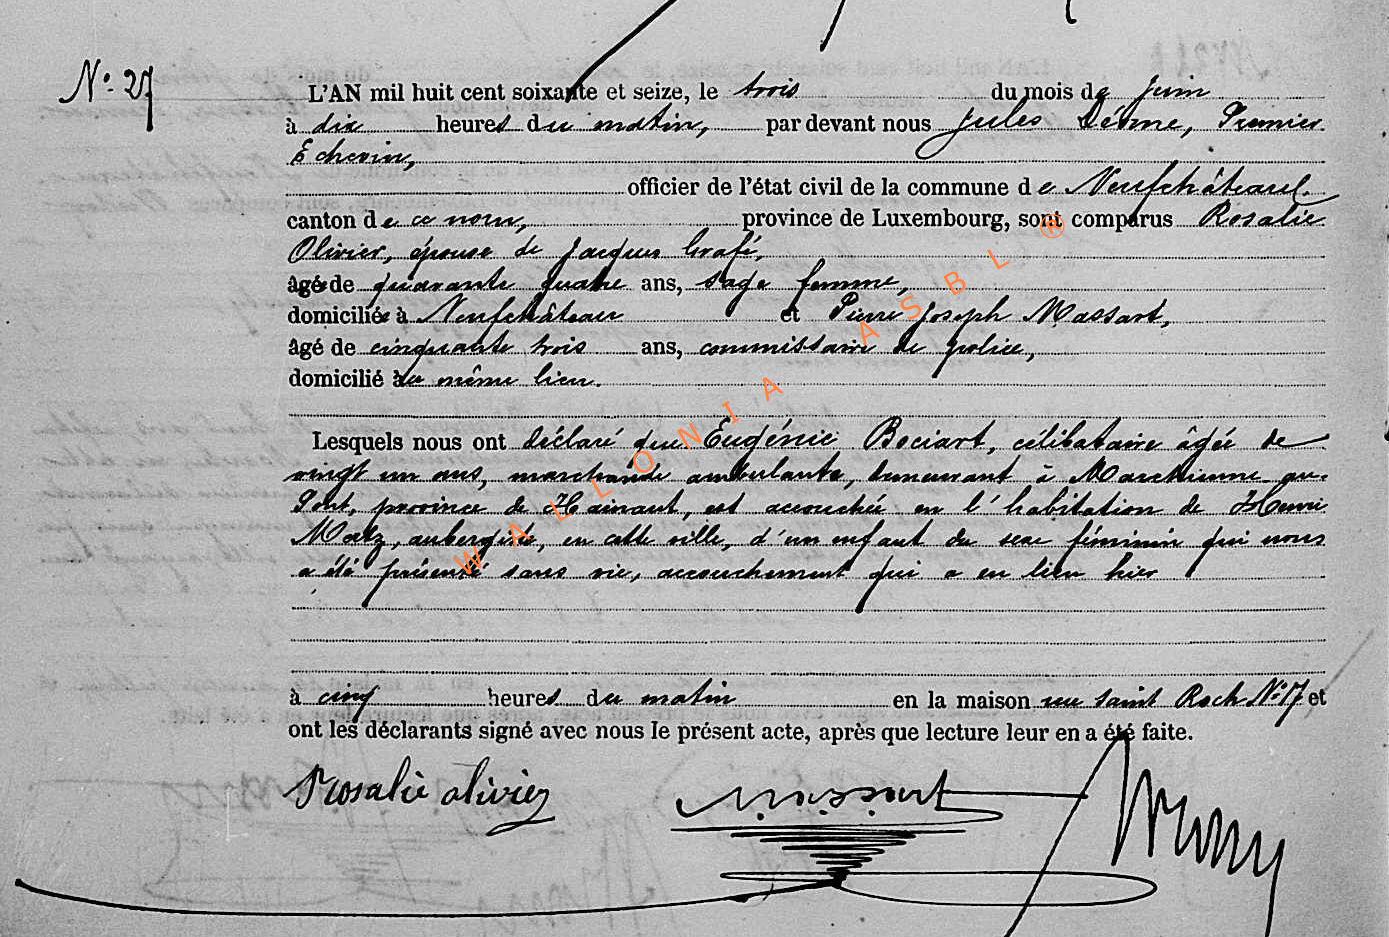 N° 27
L'AN mil huit cent soixante et seize, le trois du mois de juin
à dix heures du matin, par devant nous Jules Premier
Echevin,
officier de l'état civil de la commune de Neufchâteau,
canton de ce nom, province de Luxembourg, sont comparus Rosalie
Olivier, épouse de Jacques Grafé,
âgée de quarante quatre ans, sage femme,
domiciliée à Neufchâteau et Pierre Joseph Massart,
âgé de cinquante trois ans, commissaire de police,
domicilié au même lieu.
Lesquels nous ont déclaré que Eugénie Bociart, célibataire âgée de
vingt un ans, marchande ambulante, demeurant à Marchienne-au-
Pont, province de Hainaut, est accouchée en l'habitation de Henri
Motz, aubergiste, en cette ville, d'un enfant du sexe féminin qui nous
a été présenté sans vie, accouchement qui a eu lieu hier
à cinq heures du matin en la maison rue Saint Roch N° 17 et
ont les déclarants signé avec nous le présent acte, après que lecture leur en a été faite.
Rosalie olivier Massart
WALLONIA ASBL ®